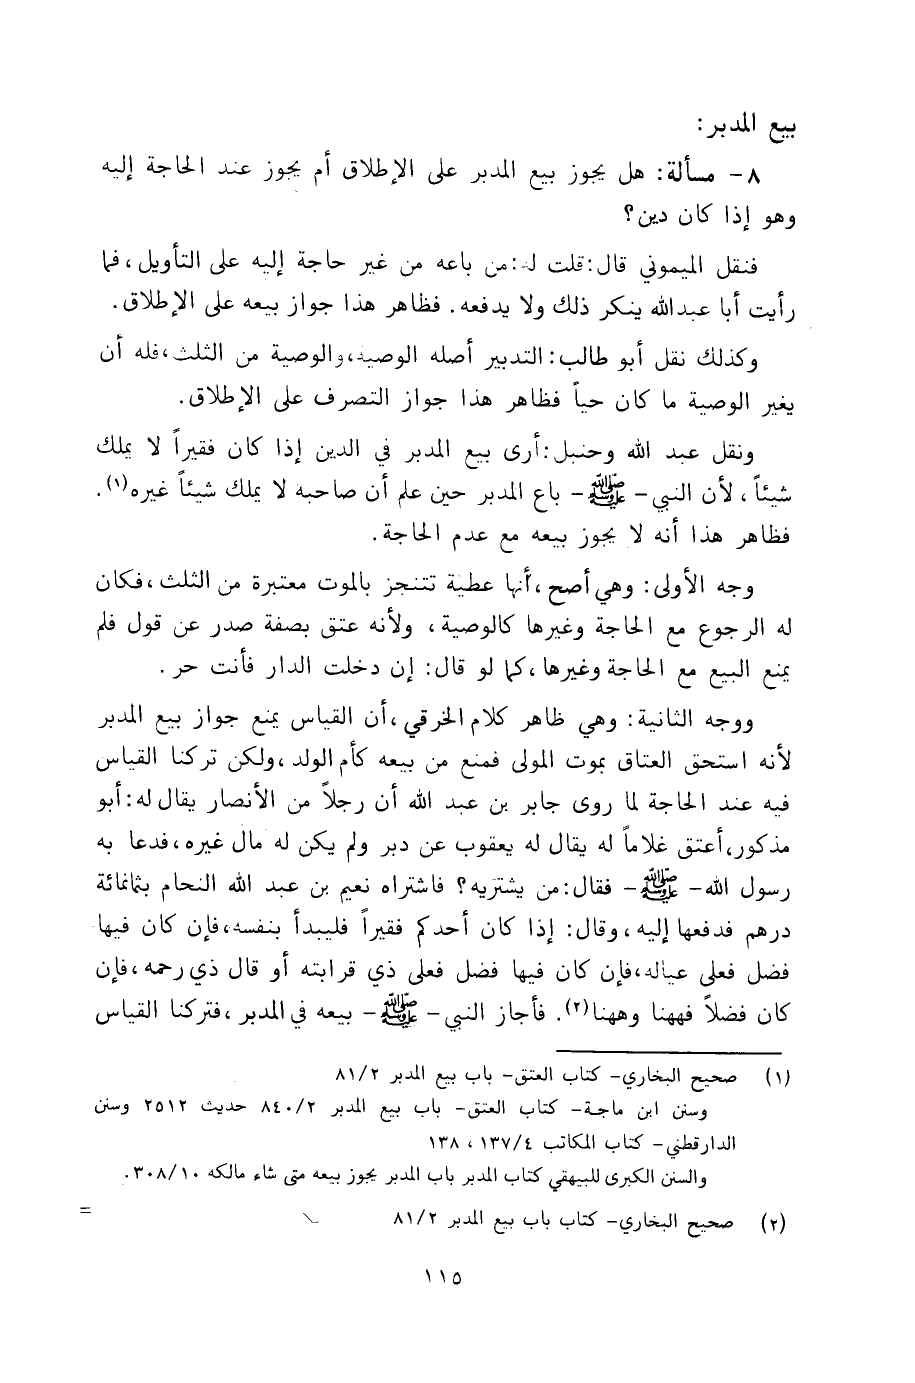 بيع المدبر:
٨- مسألة: هل يجوز بيع المدبر على الإطلاق أم يجوز عند الحاجة إليه
وهو إذا كان دين؟
فنقل الميموني قال: قلت له: من باعه من غير حاجة إليه على التأويل، فما
رأيت أبا عبدالله ينكر ذلك ولا يدفعه. فظاهر هذا جواز بيعه على الإطلاق.
وكذلك نقل أبو طالب: التدبير أصله الوصية، والوصية من الثلث، فله أن
يغير الوصية ما كان حياً فظاهر هذا جواز التصرف على الإطلاق.
ونقل عبد الله وحنبل: أرى بيع المدبر في الدين إذا كان فقيراً لا يملك
شيئاً، لأن النبي - ﷺ - باع المدبر حين علم أن صاحبه لا يملك شيئاً غيره(١).
فظاهر هذا أنه لا يجوز بيعه مع عدم الحاجة.
وجه الأولى: وهي أصح، أنها عطية تتنجز بالموت معتبرة من الثلث، فكان
له الرجوع مع الحاجة وغيرها كالوصية، ولأنه عتق بصفة صدر عن قول فلم
يمنع البيع مع الحاجة وغيرها، كما لو قال: إن دخلت الدار فأنت حر.
ووجه الثانية: وهي ظاهر كلام الخرقي، أن القياس يمنع جواز بيع المدبر
لأنه استحق العتاق بموت المولى فمنع من بيعه كأم الولد، ولكن تركنا القياس
فيه عند الحاجة لما روى جابر بن عبد الله أن رجلاً من الأنصار يقال له: أبو
مذكور، أعتق غلاماً له يقال له يعقوب عن دبر ولم يكن له مال غيره، فدعا به
رسول الله - ﷺ - فقال: من يشتريه؟ فاشتراه نعيم بن عبد الله النحام بثمانمائة
درهم فدفعها إليه، وقال: إذا كان أحدكم فقيراً فليبدأ بنفسه، فإن كان فيها
فضل فعلى عياله، فإن كان فيها فضل فعلى ذي قرابته أو قال ذي رحمه، فإن
كان فضلاً فههنا وههنا(٢). فأجاز النبي - ﷺ - بيعه في المدبر، فتركنا القياس
(١) صحيح البخاري- كتاب العتق- باب بيع المدبر ٨١/٢
وسنن ابن ماجة- كتاب العتق- باب بيع المدبر ٨٤٠/٢ حديث ٢٥١٢ وسنن
الدارقطني- كتاب المكاتب ١٣٧/٤، ١٣٨
والسنن الكبرى للبيهقي كتاب المدبر باب المدبر يجوز بيعه متى شاء مالكه ٣٠٨/١٠.
(٢) صحيح البخاري- كتاب باب بيع المدبر ٨١/٢ =
١١٥